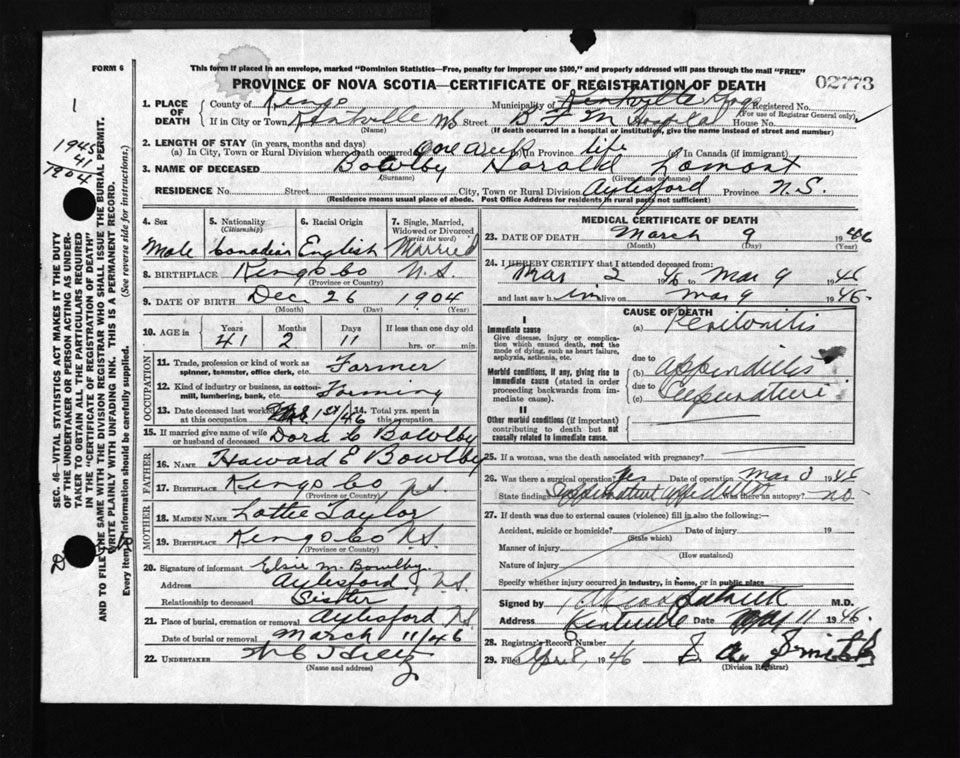 FORM 6
This form if placed in an envelope, marked "Dominion Statistics—Free, penalty for improper use $300," and properly addressed will pass through the mail "FREE"
PROVINCE OF NOVA SCOTIA—CERTIFICATE OF REGISTRATION OF DEATH
02773
1
1945
41
1904
1. PLACE OF DEATH
County of Kings
Municipality of Kentville Kings Registered No.
(For use of Registrar General only)
If in City or Town Kentville NS Street B F M Hospital House No.
(Name) (If death occurred in a hospital or institution, give the name instead of street and number)
2. LENGTH OF STAY (in years, months and days)
(a) In City, Town or Rural Division where death occurred one week In Province life In Canada (if immigrant)
3. NAME OF DECEASED Bowlby Harald Lamont
(Surname) (Given name or names)
RESIDENCE No. Street City, Town or Rural Division Aylesford Province N.S.
(Residence means usual place of abode. Post Office Address for residents in rural parts not sufficient)
4. Sex
Male
5. Nationality
(Citizenship)
Canadian
6. Racial Origin
English
7. Single, Married, Widowed or Divorced
(write the word)
Married
8. BIRTHPLACE Kings Co N.S.
(Province or Country)
9. DATE OF BIRTH Dec 26 1904
(Month) (Day) (Year)
10. AGE in
Years Months Days If less than one day old
41 2 11 hrs. or min
OCCUPATION
11. Trade, profession or kind of work as spinner, teamster, office clerk, etc. Farmer
12. Kind of industry or business, as cotton-lumbering, bank, etc. Farming
13. Date deceased last worked at this occupation 1st/46 14. Total yrs. spent in this occupation
15. If married give name of wife or husband of deceased Dora L Bowlby
FATHER
16. NAME Howard E Bowlby
17. BIRTHPLACE Kings Co N.S.
(Province or Country)
MOTHER
18. MAIDEN NAME Lottie Taylor
19. BIRTHPLACE Kings Co N.S.
(Province or Country)
20. Signature of informant Elsie M. Bowlby.
Address Aylesford N.S.
Relationship to deceased Sister
21. Place of burial, cremation or removal Aylesford N.S.
Date of burial or removal March 11/46
22. UNDERTAKER
(Name and address)
MEDICAL CERTIFICATE OF DEATH
23. DATE OF DEATH March 9 1946
(Month) (Day) (Year)
24. I HEREBY CERTIFY that I attended deceased from:
Mar 2 46 to Mar 9 1946
and last saw h im live on Mar 9 1946.
CAUSE OF DEATH
I
Immediate cause
Give disease, injury or complication which caused death, not the mode of dying, such as heart failure, asphyxia, asthenia, etc.
(a) Peritonitis
due to
Morbid conditions, if any, giving rise to immediate cause (stated in order proceeding backwards from immediate cause).
(b) appendicitis
due to
(c)
II
Other morbid conditions (if important) contributing to death but not causally related to immediate cause.
25. If a woman, was the death associated with pregnancy?
26. Was there a surgical operation? Yes Date of operation Mar 3 1946
State findings was there an autopsy? no
27. If death was due to external causes (violence) fill in also the following:—
Accident, suicide or homicide? Date of injury 19
(State which)
Manner of injury
(How sustained)
Nature of injury
Specify whether injury occurred in industry, in home, or in public place
Signed by M.D.
Address Kentville Date 11 1946.
28. Registrar's Record Number
29. Filed Apr 8, 1946 Smith
(Division Registrar)
SEC. 46—VITAL STATISTICS ACT MAKES IT THE DUTY OF THE UNDERTAKER OR PERSON ACTING AS UNDERTAKER TO OBTAIN ALL THE PARTICULARS REQUIRED IN THE "CERTIFICATE OF REGISTRATION OF DEATH" AND TO FILE THE SAME WITH THE DIVISION REGISTRAR WHO SHALL ISSUE THE BURIAL PERMIT.
WRITE PLAINLY WITH UNFADING INK. THIS IS A PERMANENT RECORD.
Every item of information should be carefully supplied. (See reverse side for instructions.)